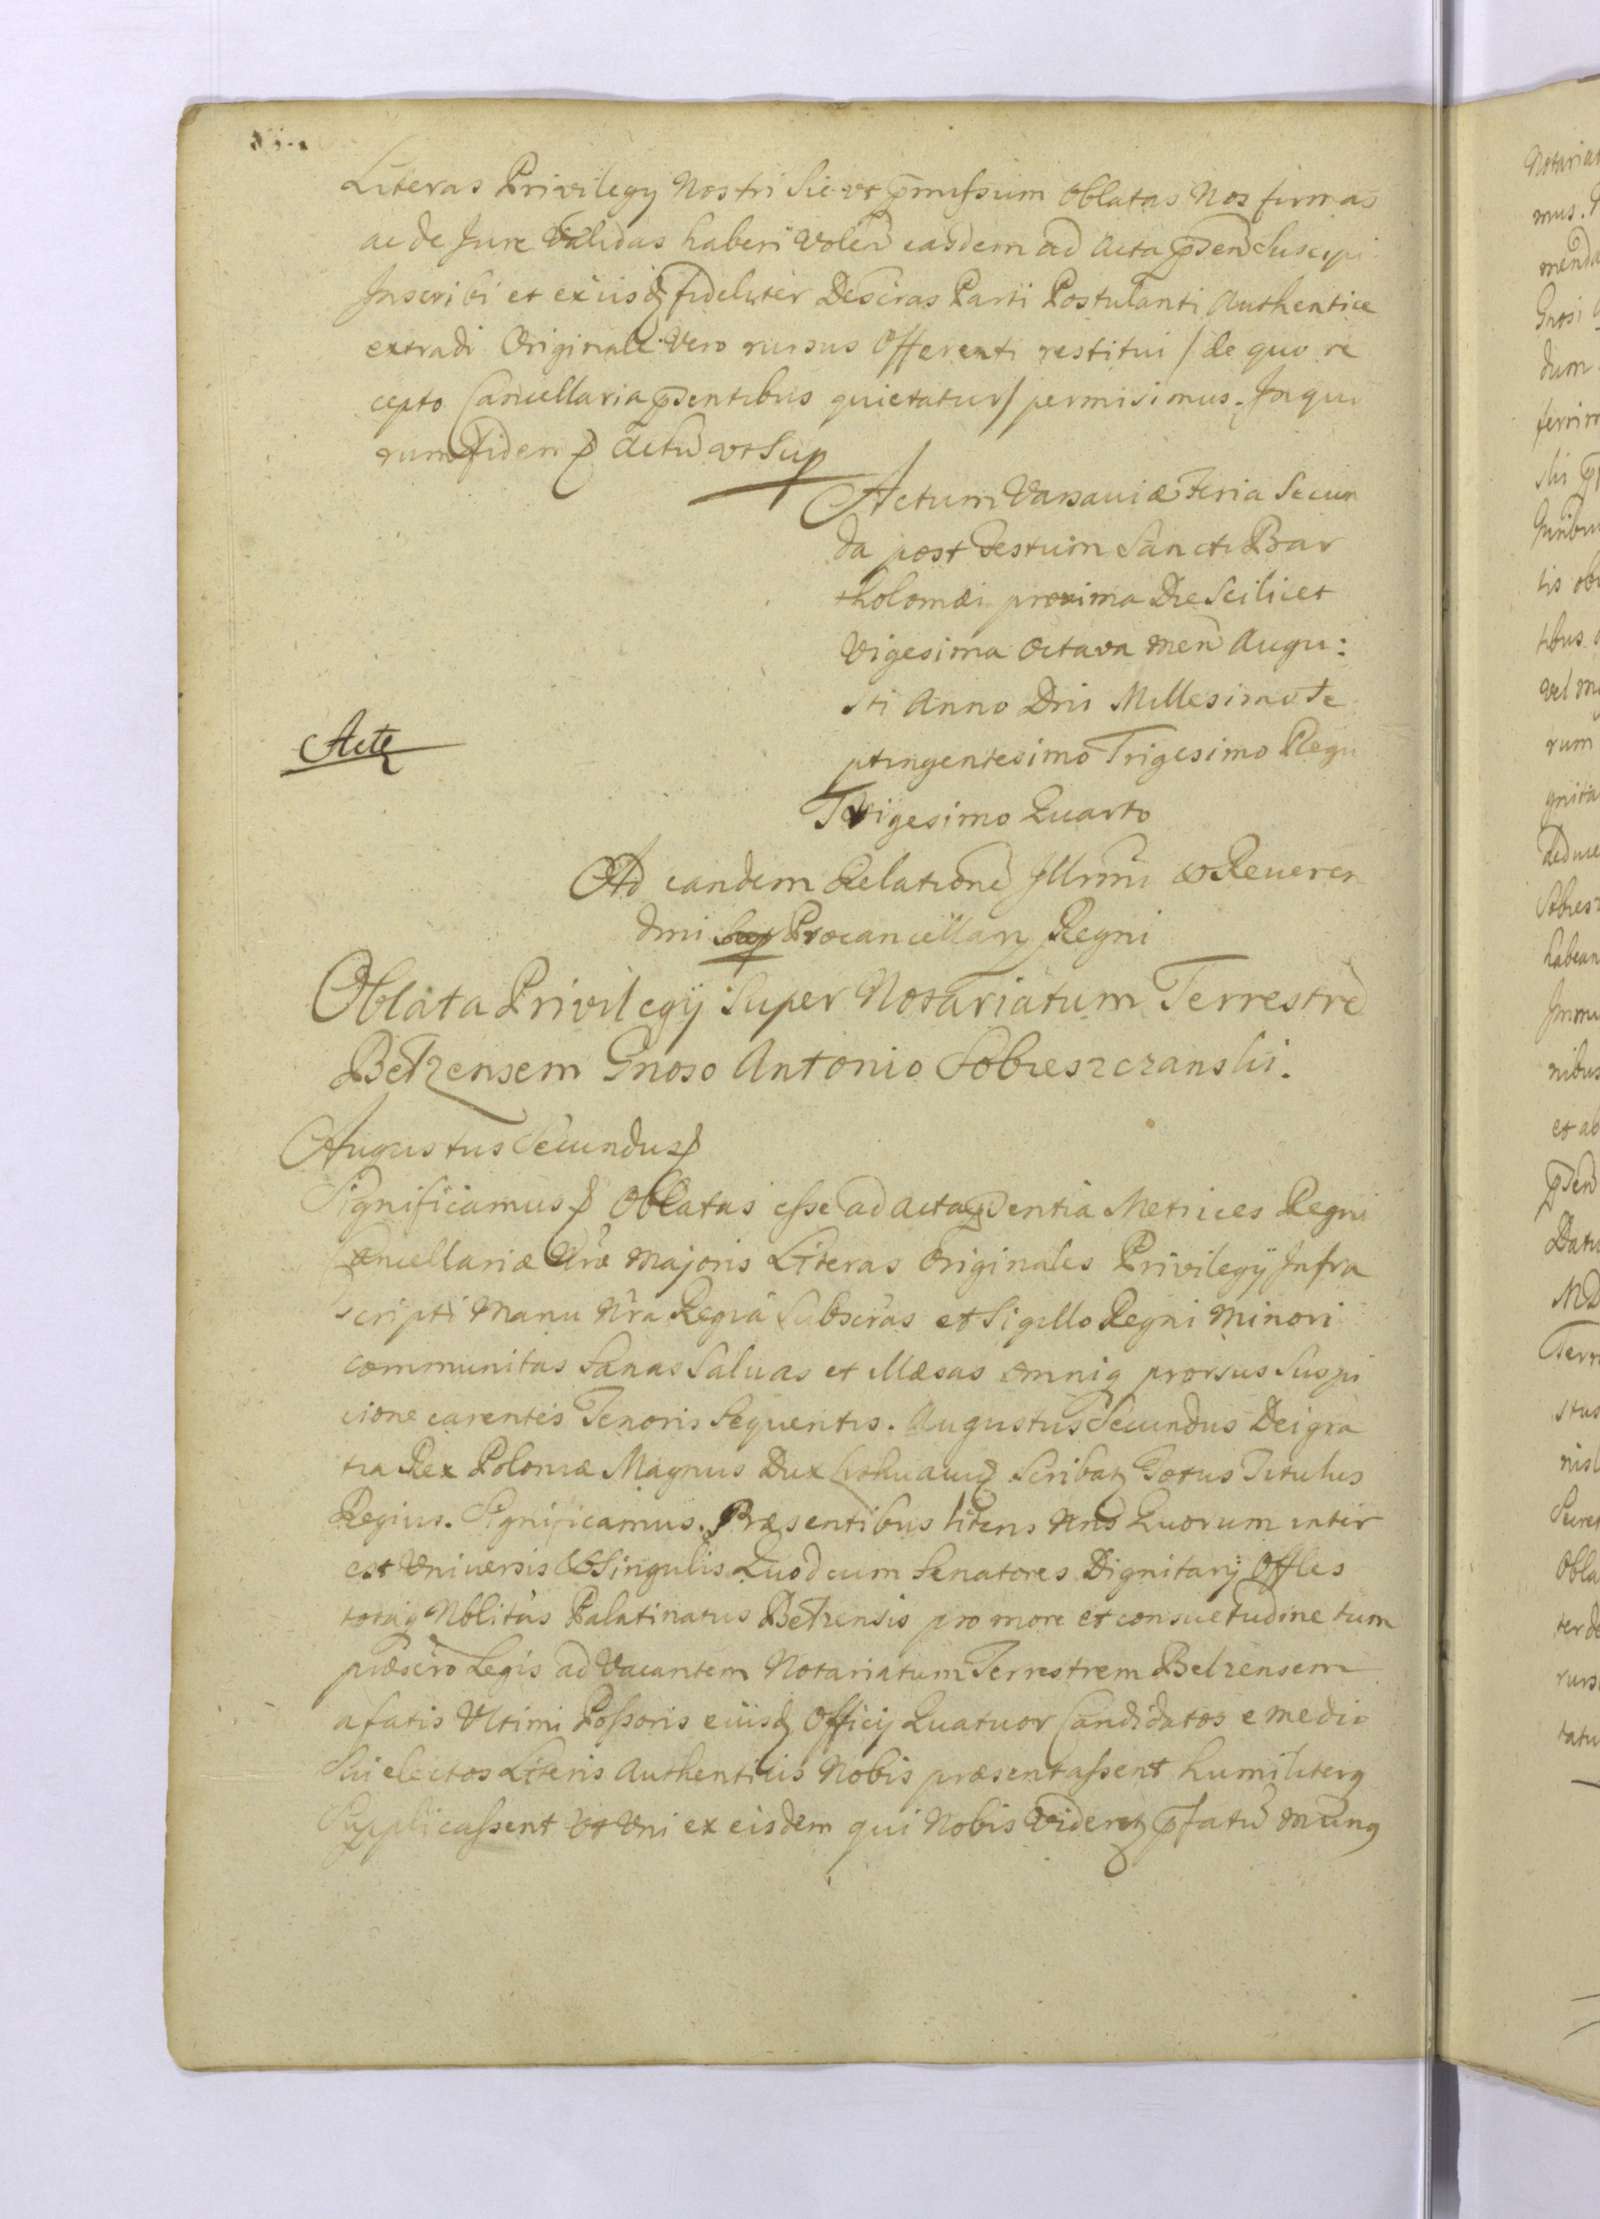 Literas Privilegij Nostri Sic ut pmissum Oblatas Nos firmas
ac de Jure Validas haberi Volen easdem ad Acta psen Suscipi
Inscribi et ex iisq fideliter Descras Parti Postulanti Authentice
extradi Originale Vero rursus Offerenti restitui / de quo re
cepto Cancellaria psentibus quietatur / permisimus. In quo
rum fidem p Actu ut Sup
Actum Varsaviæ Feria Secun
da post Festum Sancti Bar
tholomæi proxima Die Scilicet
Vigesima Octava Men Augu:
sti Anno Dni Millesimo Se
ptingentesimo Trigesimo Regni
Trigesimo Quarto
Acta
Ad eandem Relatione Illrmi & Reveren
dmi Procancellarij Regni
Oblata Privilegij Super Notariatum Terrestre
Betzensem Gnoso Antonio Sobieszczanski.
Augustus Secundus
Significamus Oblatas esse ad Acta psentia Metrices Regni
Cancellariæ Nræ Majoris Literas Originales Privilegij Infra
scripti Manu Nra Regia Subscras et Sigillo Regni Minori
communitas Sanas Salvas et Illæsas omniq prorsus Suspi
cione carentes Tenoris Sequentis. Augustus Secundus Dei gra
tia Rex Poloniæ Magnus Dux Lithuaniæ Scribat Totus Titulus
Regius. Significamus. Præsentibus literis Nris Quorum inter
est Universis & Singulis Quod cum Senatores Dignitarij Offles
totaq Nblitas Palatinatus Betzensis pro more et consuetudine tum
præscro Legis ad Vacantem Notariatum Terrestrem Belzensem
a fatis Ultimi Possoris eiusd Officij Quatuor Candidatos e medio
Sui electos Literis Authenticis Nobis præsentassent humiliterq
Supplicassent Ut Uni ex eisdem qui Nobis Videret pfatu munq